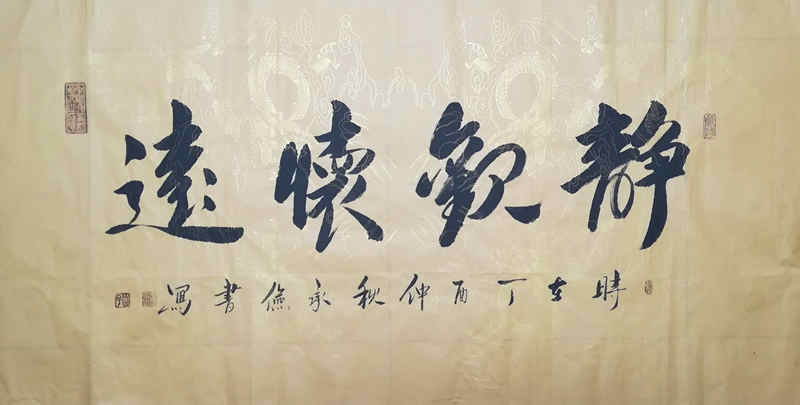 靜觀懷遠
時在丁酉仲秋承儉書寫